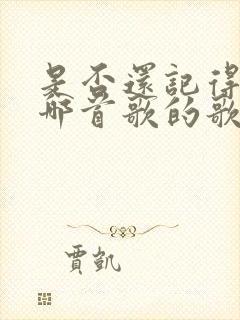 是否還記得
那首歌的歌
賈凱